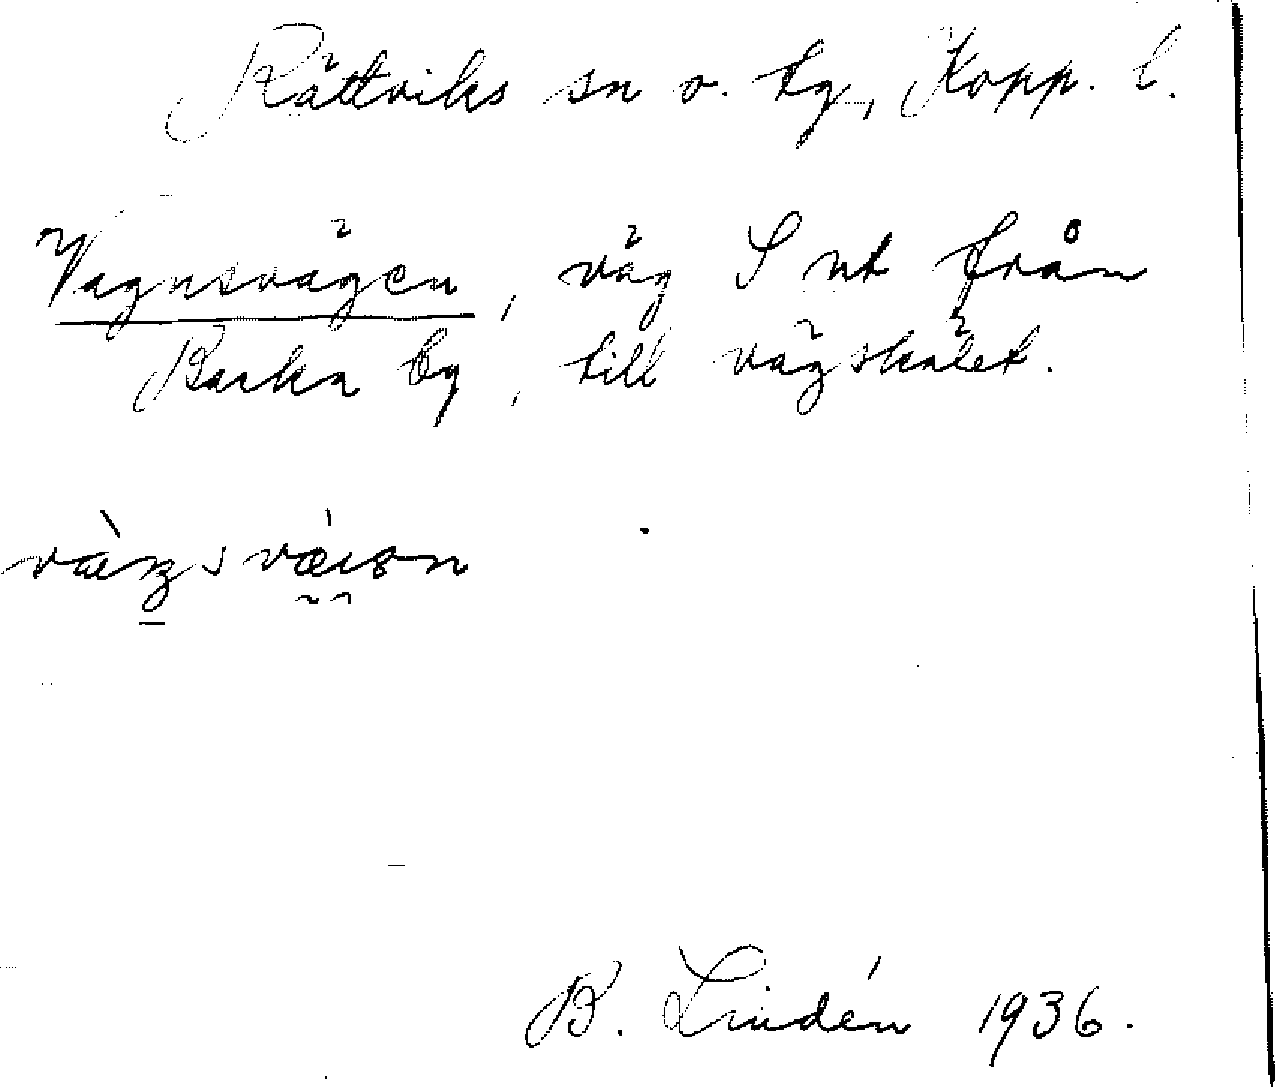 Rättviks sn o. tg, Kopp. l.
Vagnsvägen, väg S ut från
Backa by, till vägskälet.
B. Lindén 1936.